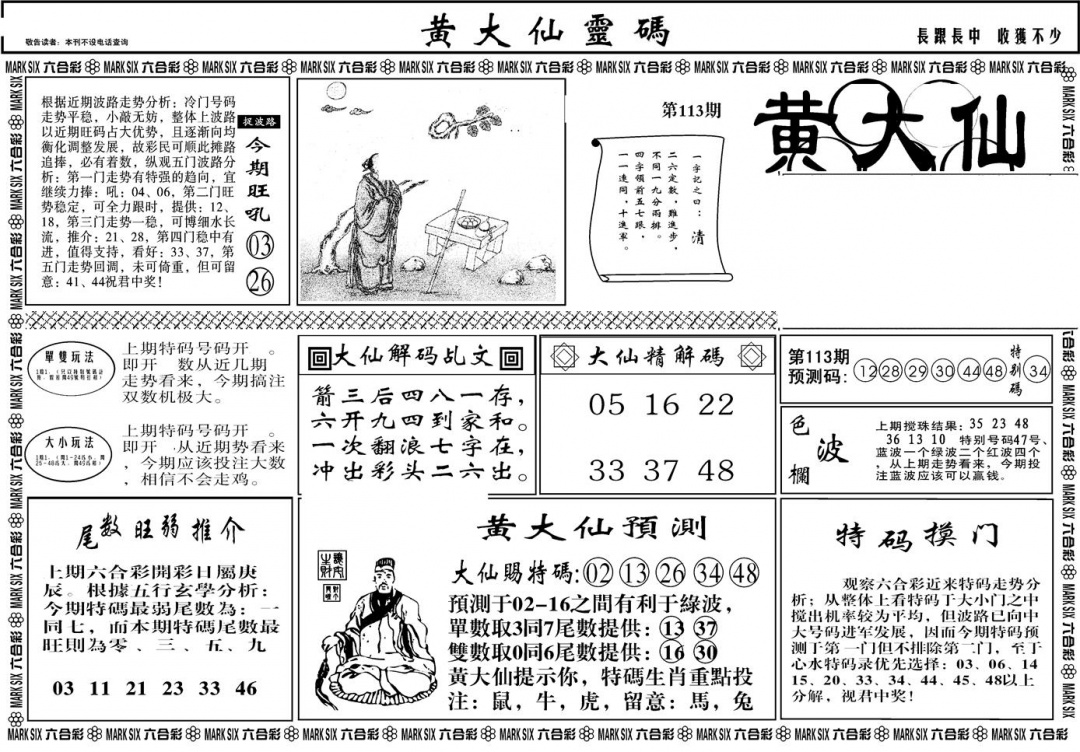 黄大仙靈碼
敬告读者:本刊不设电话查询
長跟長中 收獲不少
MARK SIX 六合彩 MARK SIX 六合彩 MARK SIX 六合彩 MARK SIX 六合彩 MARK SIX 六合彩 MARK SIX 六合彩 MARK SIX 六合彩 MARK SIX 六合彩 MARK SIX 六合彩 MARK SIX 六合彩 MARK SIX 六合彩
根据近期波路走势分析:冷门号码
走势平稳,小敲无妨,整体上波路
以近期旺码占大优势,且逐渐向均
衡化调整发展,故彩民可顺此摊路
追捧,必有着数,纵观五门波路分
析:第一门走势有特强的趋向,宜
继续力捧:吼:04、06,第二门旺
势稳定,可全力跟时,提供:12、
18,第三门走势一稳,可博细水长
流,推介:21、28,第四门稳中有
进,值得支持,看好:33、37,第
五门走势回调,未可倚重,但可留
意:41、44祝君中奖!
捉波路
今期旺吼
03
26
第113期
一字記之曰:清
二六定數,難進步,
不同一九分兩排。
四字領前五七跟,
一一連同,十進軍。
黄大仙
單雙玩法
上期特码号码开 。
即开 数从近几期
走势看来,今期搞注
双数机极大。
大小玩法
上期特码号码开 。
即开 .从近期势看来
,今期应该投注大数
,相信不会走鸡。
大仙解码乩文
箭三后四八一存,
六开九四到家和。
一次翻浪七字在,
冲出彩头二六出。
大仙精解碼
05 16 22
33 37 48
第113期
预测码: 12 28 29 30 44 48 特别碼 34
色波欄
上期搅珠结果:35 23 48
36 13 10 特别号码47号、
蓝波一个绿波二个红波四个
,从上期走势看来,今期投
注蓝波应该可以赢钱。
尾数旺弱推介
上期六合彩開彩日屬庚
辰。根據五行玄學分析:
今期特碼最弱尾數為:一
同七,而本期特碼尾數最
旺則為零、三、五、九
03 11 21 23 33 46
黄大仙預測
大仙賜特碼: 02 13 26 34 48
預測于02-16之間有利于綠波,
單數取3同7尾數提供: 13 37
雙數取0同6尾數提供: 16 30
黄大仙提示你,特碼生肖重點投
注:鼠,牛,虎,留意:馬,兔
特码摸门
观察六合彩近来特码走势分
析;从整体上看特码于大小门之中
搅出机率较为平均,但波路已向中
大号码进军发展,因而今期特码预
测于第一门但不排除第二门,至于
心水特码录优先选择:03、06、14
15、20、33、34、44、45、48以上
分解,视君中奖!
MARK SIX 六合彩 MARK SIX 六合彩 MARK SIX 六合彩 MARK SIX 六合彩 MARK SIX 六合彩 MARK SIX 六合彩 MARK SIX 六合彩 MARK SIX 六合彩 MARK SIX 六合彩 MARK SIX 六合彩 MARK SIX 六合彩